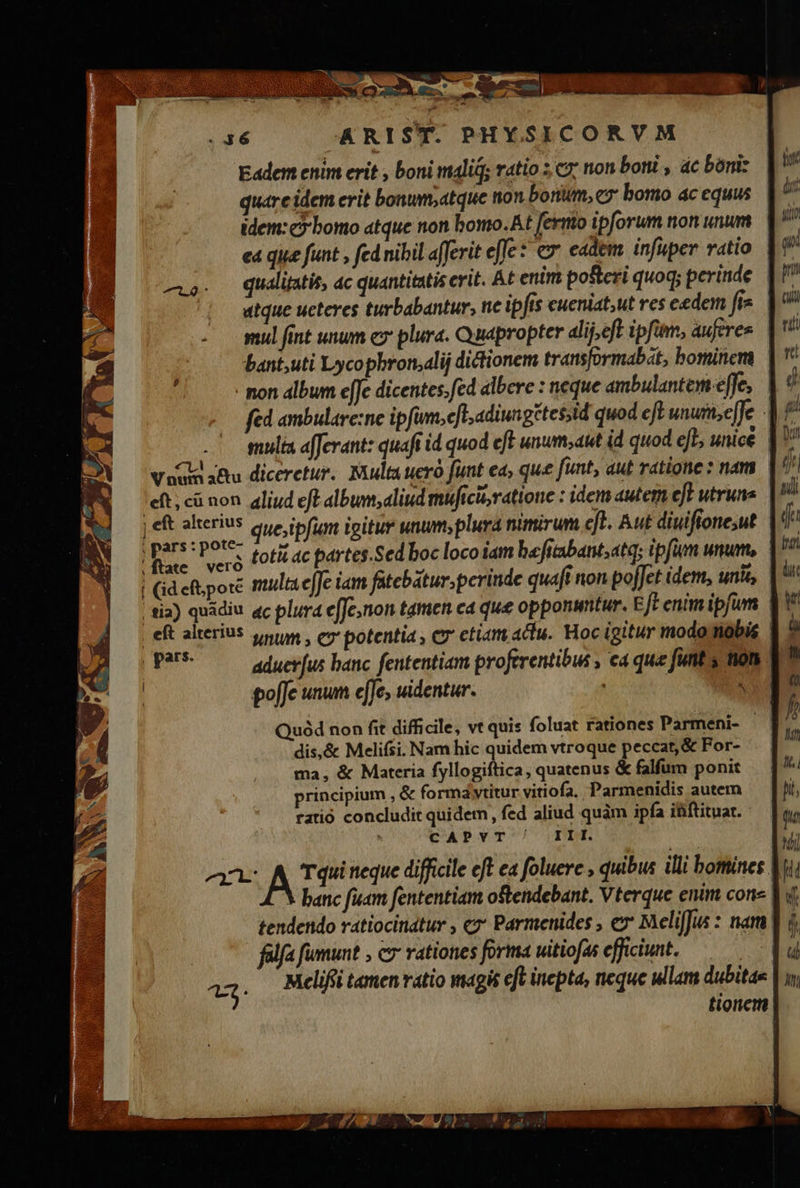 36 ARIST. PHYSICORVM
Eadem enim erit , boni maliq́; ratio : & non boni , ac boni:
quare idem erit bonum,atque non bonum, & homo ac equus
idem: & homo atque non homo. At sermo ipsorum non unum
ea quæ sunt , sed nihil asserit esse : & eadem insuper ratio
20. qualitatis, ac quantitatis erit. At enim posteri quoq; perinde
atque ueteres turbabantur, ne ipsis eueniat,ut res eædem si=
mul sint unum & plura. Quapropter alij,est ipsum, aufere=
bant,uti Lycophron,alij dictionem transformabāt, hominem
non album esse dicentes,sed albere : neque ambulantem esse,
sed ambulare:ne ipsum,est,adiungētes,id quod est unum,esse
multa asserant: quasi id quod est unum,aut id quod est, unice
21.
Vnum actu diceretur. Multa uerò sunt ea, quæ sunt, aut ratione : nam
est, cū non aliud est album,aliud musicū,ratione : idem autem est utrun=
est alterius que,ipsum igitur unum,plura nimirum est. Aut diuisione,ut
pars : pote-
state verò totū ac partes.Sed hoc loco iam hæsitabant,atq; ipsum unum,
(id est,potē multa esse iam fatebātur,perinde quasi non posset idem, unū,
tia) quādiu ac plura esse,non tamen ea quæ opponuntur. Est enim ipsum
est alterius unum , & potentia , & etiam actu. Hoc igitur modo nobis
pars. aduersus hanc sententiam proferentibus , ea quæ sunt , non
posse unum esse, uidentur.
Quòd non fit difficile, vt quis soluat rationes Parmeni-
dis,& Melissi. Nam hic quidem vtroque peccat,& For-
ma, & Materia syllogistica , quatenus & falsum ponit
principium , & forma vtitur vitiosa. Parmenidis autem
ratiō concludit quidem , sed aliud quàm ipsa instituat.
CAPVT III.
22. AT qui neque difficile est ea soluere , quibus illi homines
hanc suam sententiam ostendebant. Vterque enim con=
tendendo ratiocinatur , & Parmenides , & Melissus : nam
falsa sumunt , & rationes forma uitiosas efficiunt.
23. Melissi tamen ratio magis est inepta, neque ullam dubita=
tionem